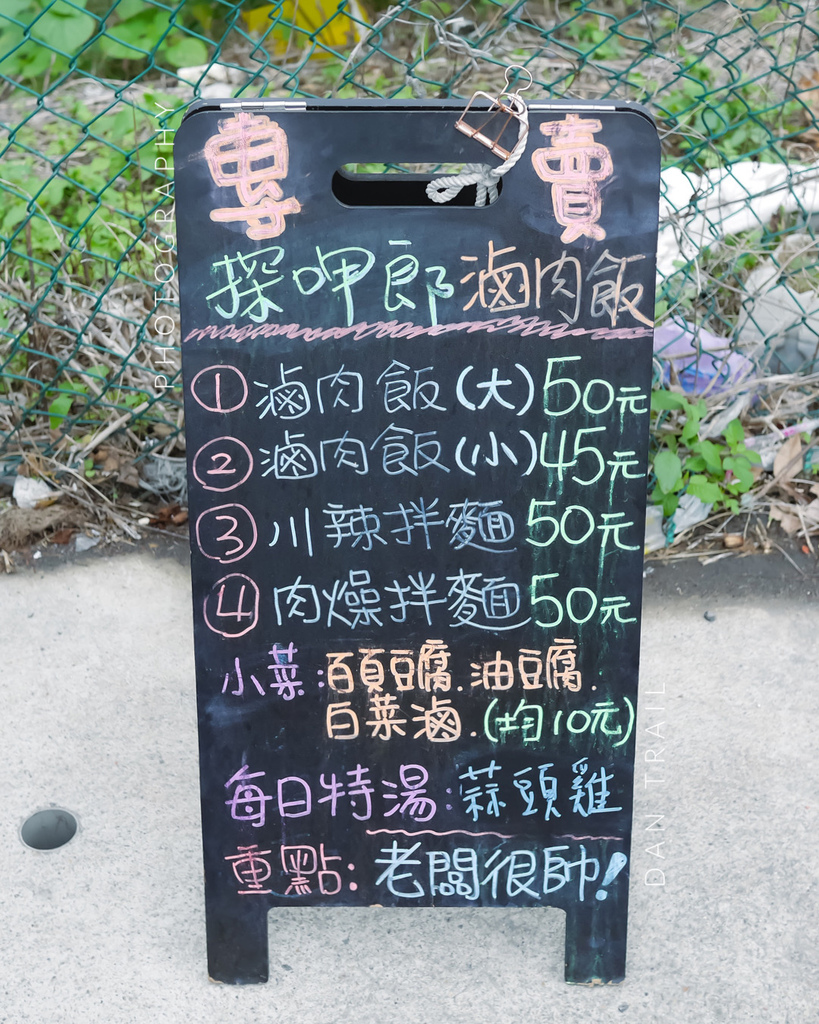 專賣
探呷郎滷肉飯
① 滷肉飯(大)50元
② 滷肉飯(小)45元
③ 川辣拌麵 50元
④ 肉燥拌麵 50元
小菜:百頁豆腐.油豆腐.
白菜滷.(均10元)
每日特湯:蒜頭雞
重點:老闆很帥!
PHOTOGRAPHY
DAN TRAIL